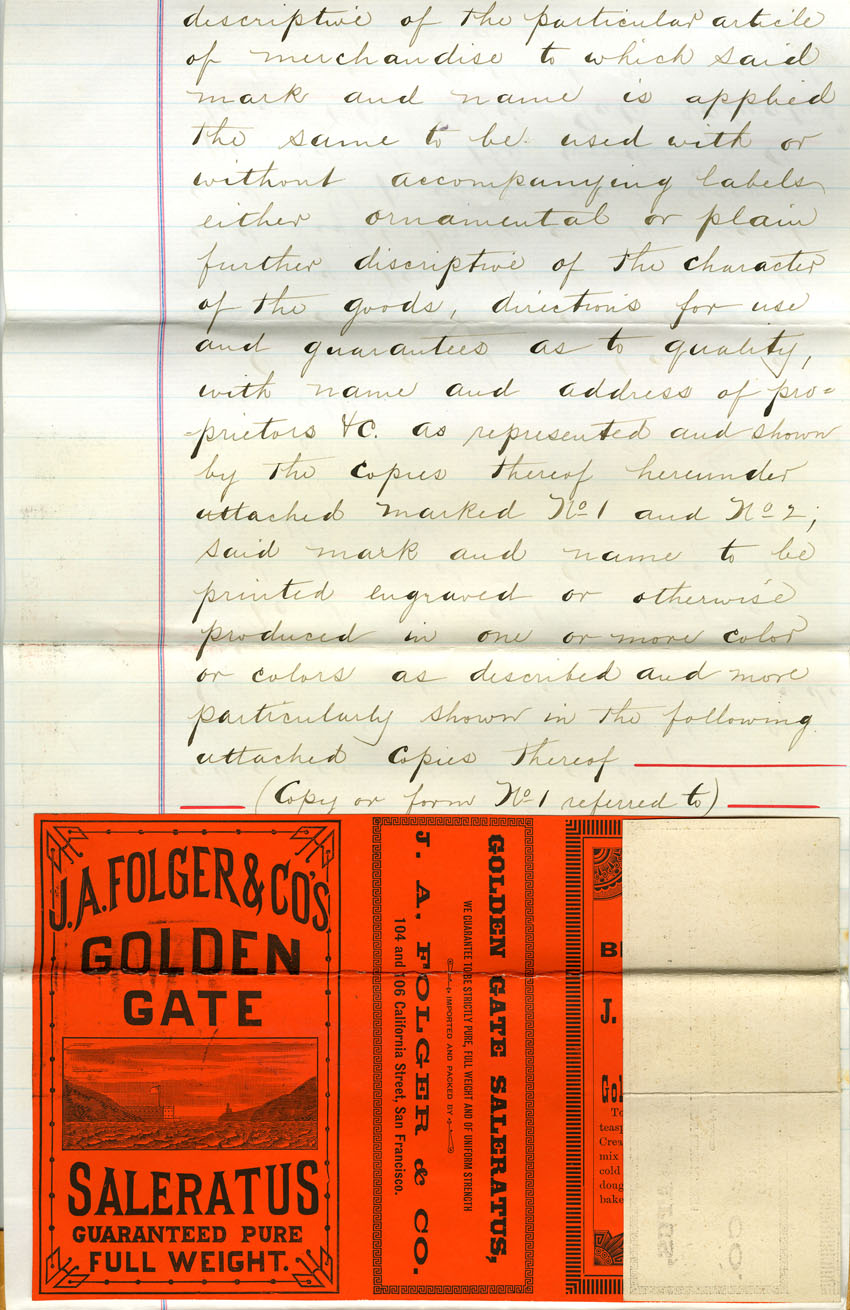 descriptive of the particular article
of merchandise to which said
mark and name is applied
the same to be used with or
without accompanying labels
either ornamental or plain
further discriptive of the character
of the goods, directions for use
and guarantees as to quality,
with name and address of pro=
=prietors &C. as represented and shown
by the Copies thereof hereunder
attached marked No 1 and No 2;
said mark and name to be
printed engraved or otherwise
produced in one or more color
or colors as described and more
particularly shown in the following
attached Copies thereof
(Copy or form No 1 referred to)
J.A. FOLGER & CO'S
GOLDEN
GATE
SALERATUS
GUARANTEED PURE
FULL WEIGHT.
GOLDEN GATE SALERATUS,
WE GUARANTEE TO BE STRICTLY PURE, FULL WEIGHT AND OF UNIFORM STRENGTH
IMPORTED AND PACKED BY
J. A. FOLGER & CO.
104 and 106 California Street, San Francisco.
J.
To
teasp
Crea
mix
cold
doug
bake